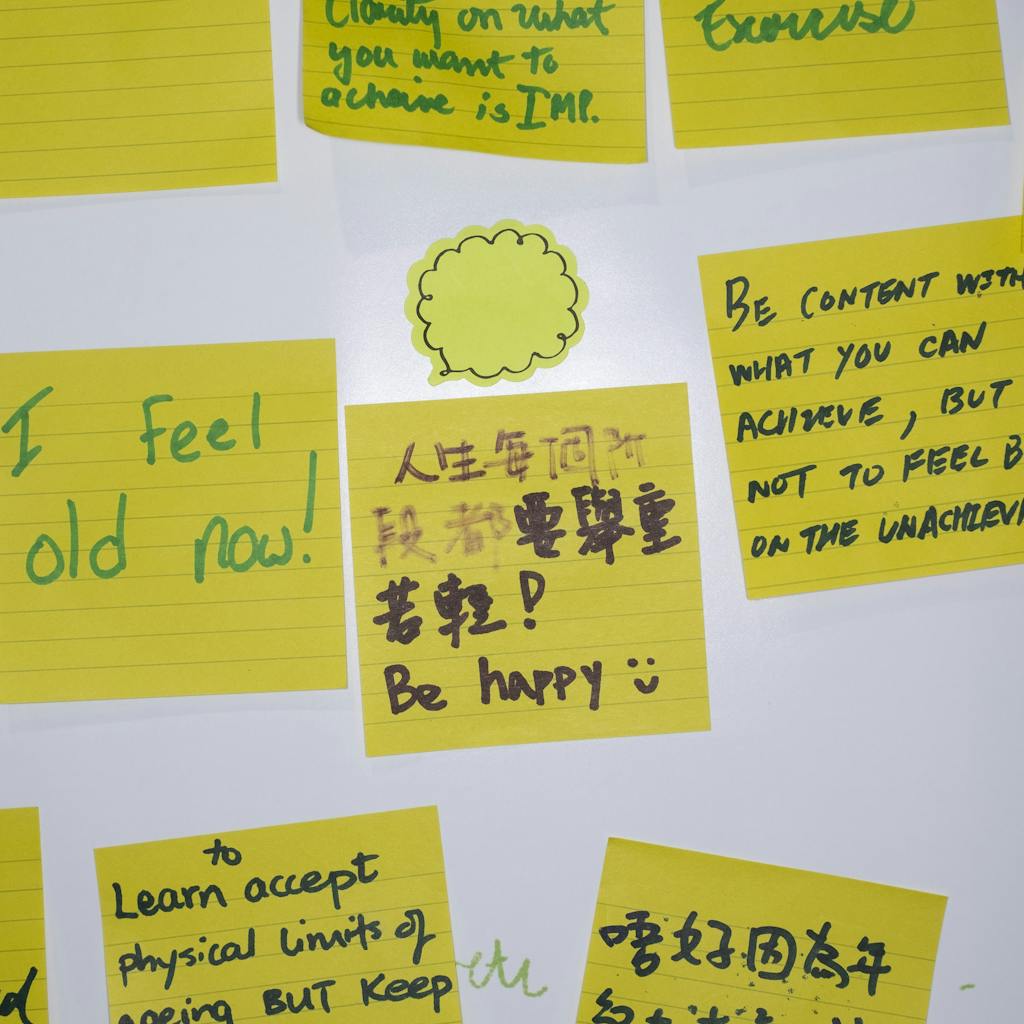 Clarity on what
you want to
achieve is IMP.
Exercise
BE CONTENT WITH
WHAT YOU CAN
ACHIEVE, BUT
NOT TO FEEL B
ON THE UNACHIEV
I feel
old now!
人生每個所
段都要舉重
若輕!
Be happy
to
Learn accept
physical limits of
ageing BUT Keep
etc
唔好因為年